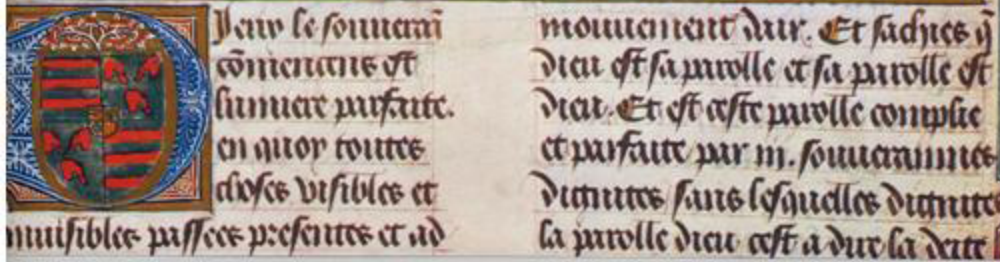 Dieux le souueraī
est
lumiere parfaite.
en quoy toutes
choses visibles et
inuisibles passees presentes et ad
mouuement dair. Et sachies q̄
dieu est sa parolle et sa parolle est
dieu. Et est ceste parolle complie
et parfaite par iii. souuerainnes
dignites sans lesquelles dignites
la parolle dieu cest a dire la deite